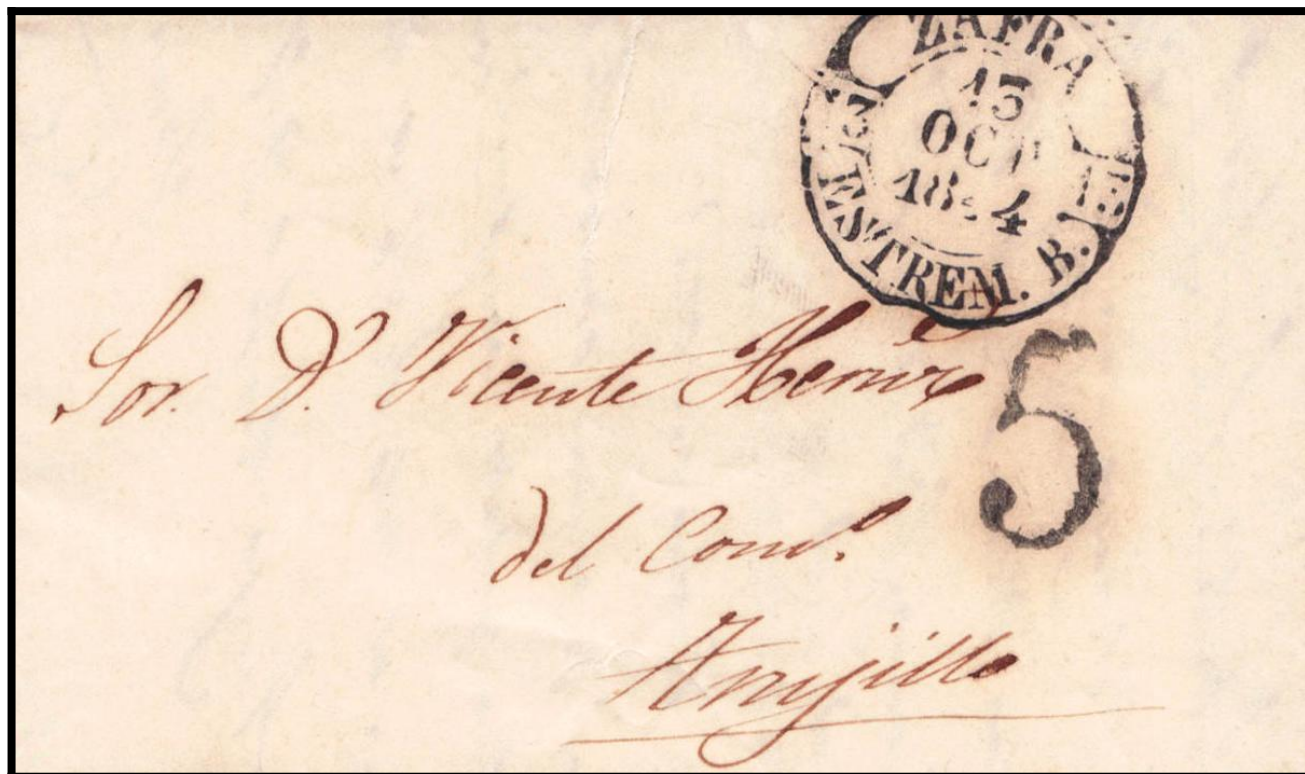 ZAFRA
13
OCT
18 4
ESTREM. B.
5
Sor. D.n Vicente
del Com.o
Trujillo